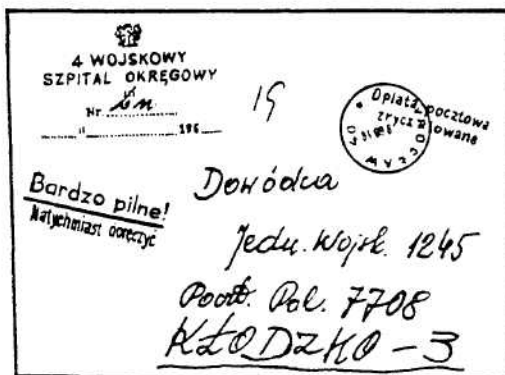 4 WOJSKOWY
SZPITAL OKRĘGOWY
Nr
196
Opłata pocztowa
WROCŁAW
Bardzo pilne!
Natychmiast doręczyć
Dowódca
Jedn. Wojsk. 1245
Poczt. Pol. 7708
KŁODZKO - 3